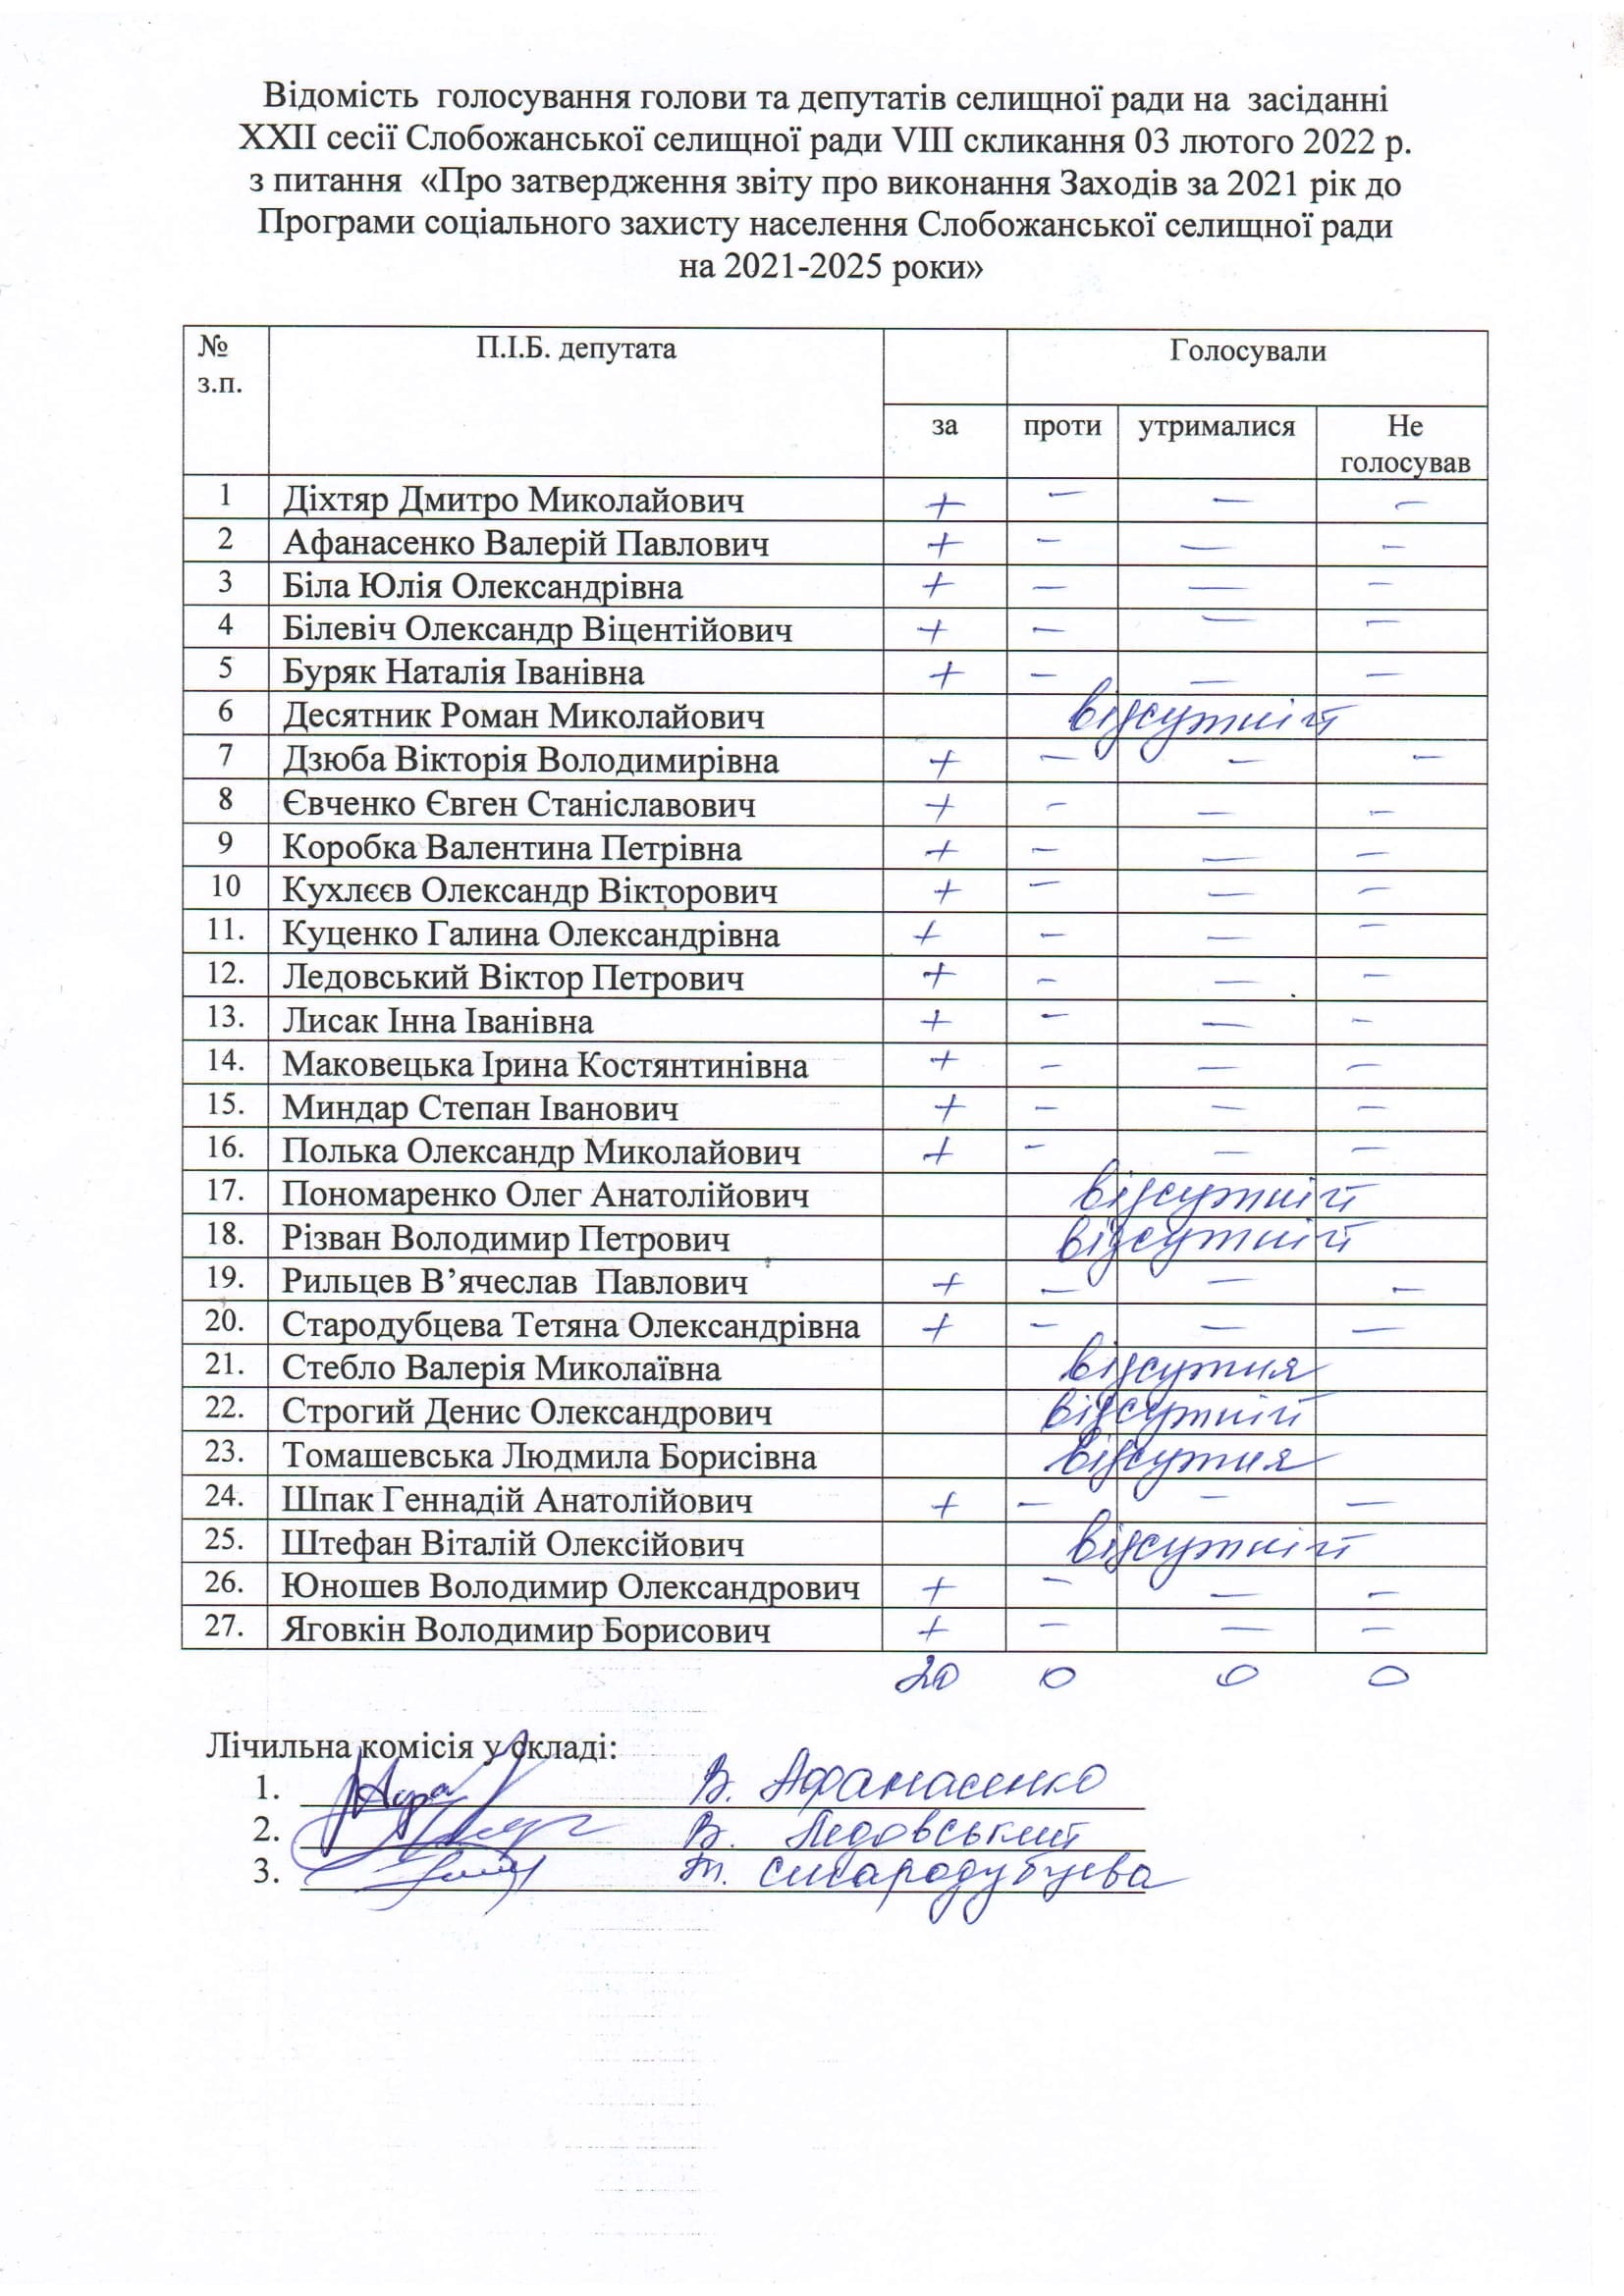 Відомість голосування голови та депутатів селищної ради на засіданні
XXII сесії Слобожанської селищної ради VIII скликання 03 лютого 2022 р.
з питання «Про затвердження звіту про виконання Заходів за 2021 рік до
Програми соціального захисту населення Слобожанської селищної ради
на 2021-2025 роки»
№ П.І.Б. депутата Голосували
з.п.
за проти утрималися Не
голосував
1 Діхтяр Дмитро Миколайович + – – –
2 Афанасенко Валерій Павлович + – – –
3 Біла Юлія Олександрівна + – – –
4 Білевіч Олександр Віцентійович + – – –
5 Буряк Наталія Іванівна + – – –
6 Десятник Роман Миколайович відсутній
7 Дзюба Вікторія Володимирівна + – – –
8 Євченко Євген Станіславович + – – –
9 Коробка Валентина Петрівна + – – –
10 Кухлєєв Олександр Вікторович + – – –
11. Куценко Галина Олександрівна + – – –
12. Ледовський Віктор Петрович + – – –
13. Лисак Інна Іванівна + – – –
14. Маковецька Ірина Костянтинівна + – – –
15. Миндар Степан Іванович + – – –
16. Полька Олександр Миколайович + – – –
17. Пономаренко Олег Анатолійович відсутній
18. Різван Володимир Петрович відсутній
19. Рильцев В’ячеслав Павлович + – – –
20. Стародубцева Тетяна Олександрівна + – – –
21. Стебло Валерія Миколаївна відсутня
22. Строгий Денис Олександрович відсутній
23. Томашевська Людмила Борисівна відсутня
24. Шпак Геннадій Анатолійович + – – –
25. Штефан Віталій Олексійович відсутній
26. Юношев Володимир Олександрович + – – –
27. Яговкін Володимир Борисович + – – –
20 0 0 0
Лічильна комісія у складі:
1. В. Афанасенко
2. В. Ледовський
3. Т. Стародубцева